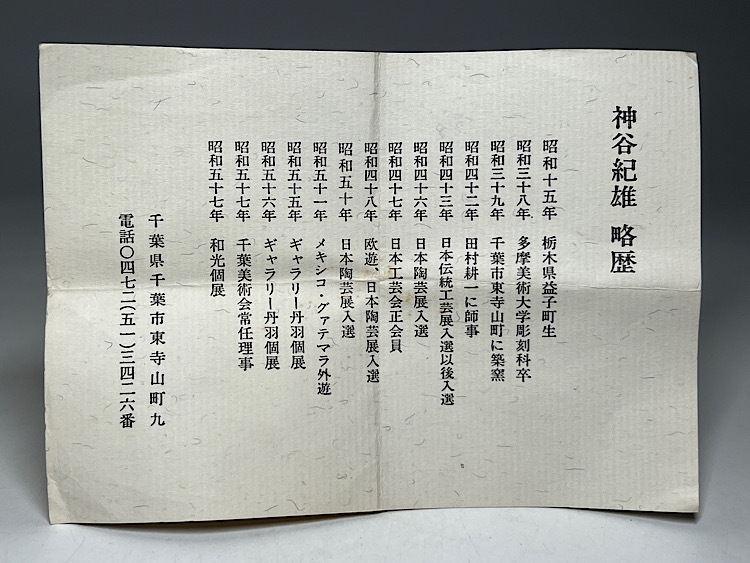 神谷紀雄 略歴
昭和十五年 栃木県益子町生
昭和三十八年 多摩美術大学彫刻科卒
昭和三十九年 千葉市東寺山町に築窯
昭和四十二年 田村耕一に師事
昭和四十三年 日本伝統工芸展入選以後入選
昭和四十六年 日本陶芸展入選
昭和四十七年 日本工芸会正会員
昭和四十八年 欧遊、日本陶芸展入選
昭和五十年 日本陶芸展入選
昭和五十一年 メキシコ・グァテマラ外遊
昭和五十五年 ギャラリー丹羽個展
昭和五十六年 ギャラリー丹羽個展
昭和五十七年 千葉美術会常任理事
昭和五十七年 和光個展
千葉県千葉市東寺山町九
電話〇四七二(五一)三四二六番